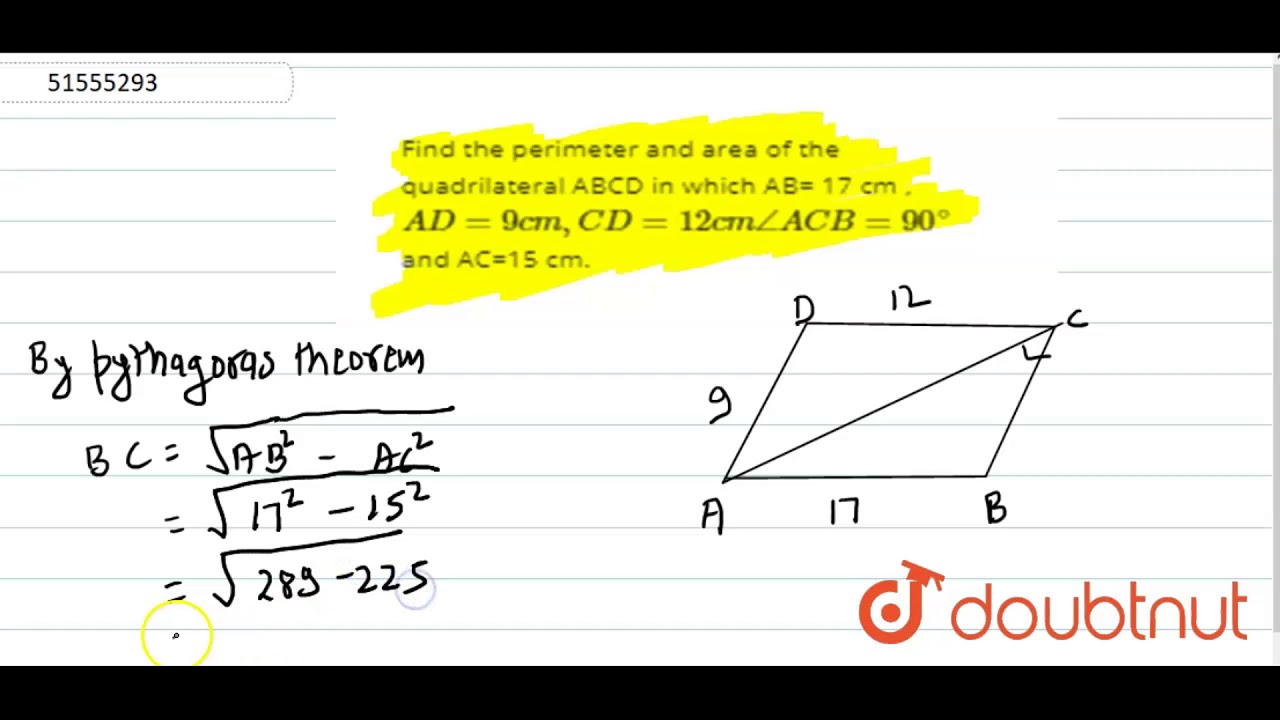 51555293
Find the perimeter and area of the
quadrilateral ABCD in which AB= 17 cm ,
AD = 9cm, CD = 12cm∠ACB = 90°
and AC=15 cm.
By pythagoras theorem
BC = √AB² - AC²
= √17² - 15²
= √289 - 225
D
12
C
9
A
17
B
doubtnut